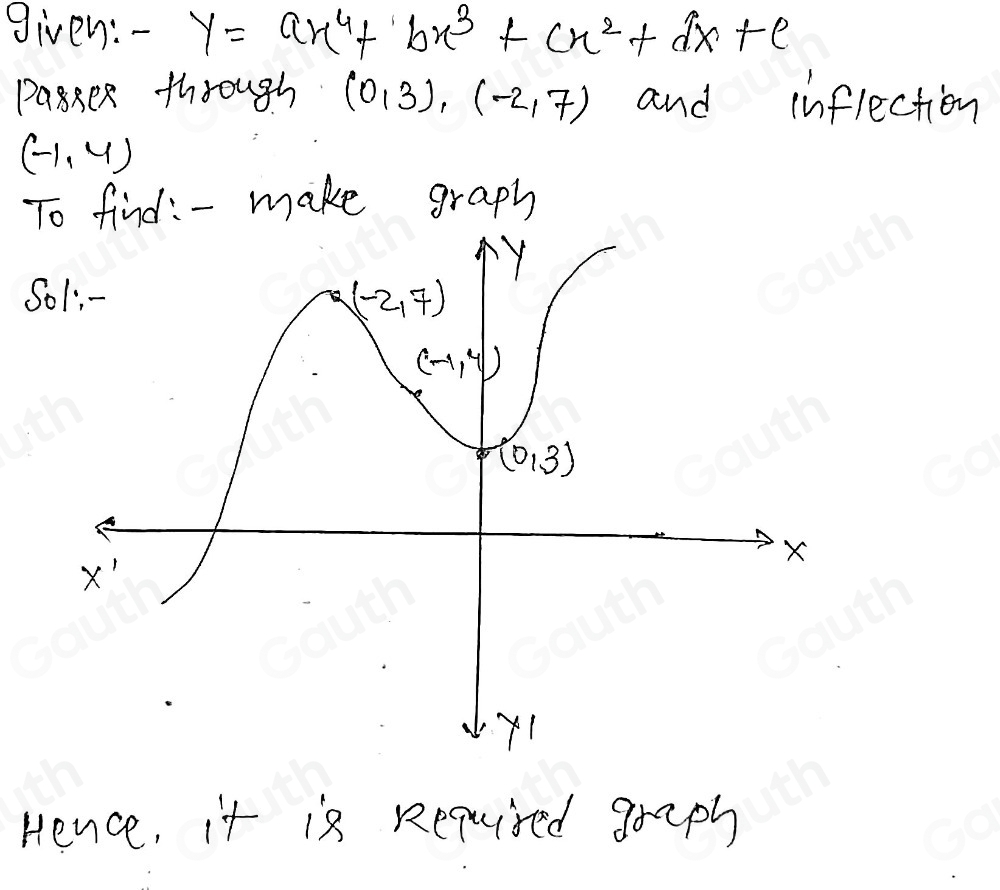 Given:- y = ax⁴ + bx³ + cx² + dx + e
Passes through (0,3), (-2,7) and inflection
(-1,4)
To find:- make graph
Sol:-
Y
(-2,7)
(-1,4)
(0,3)
X' X
Y1
Hence, it is Required graph